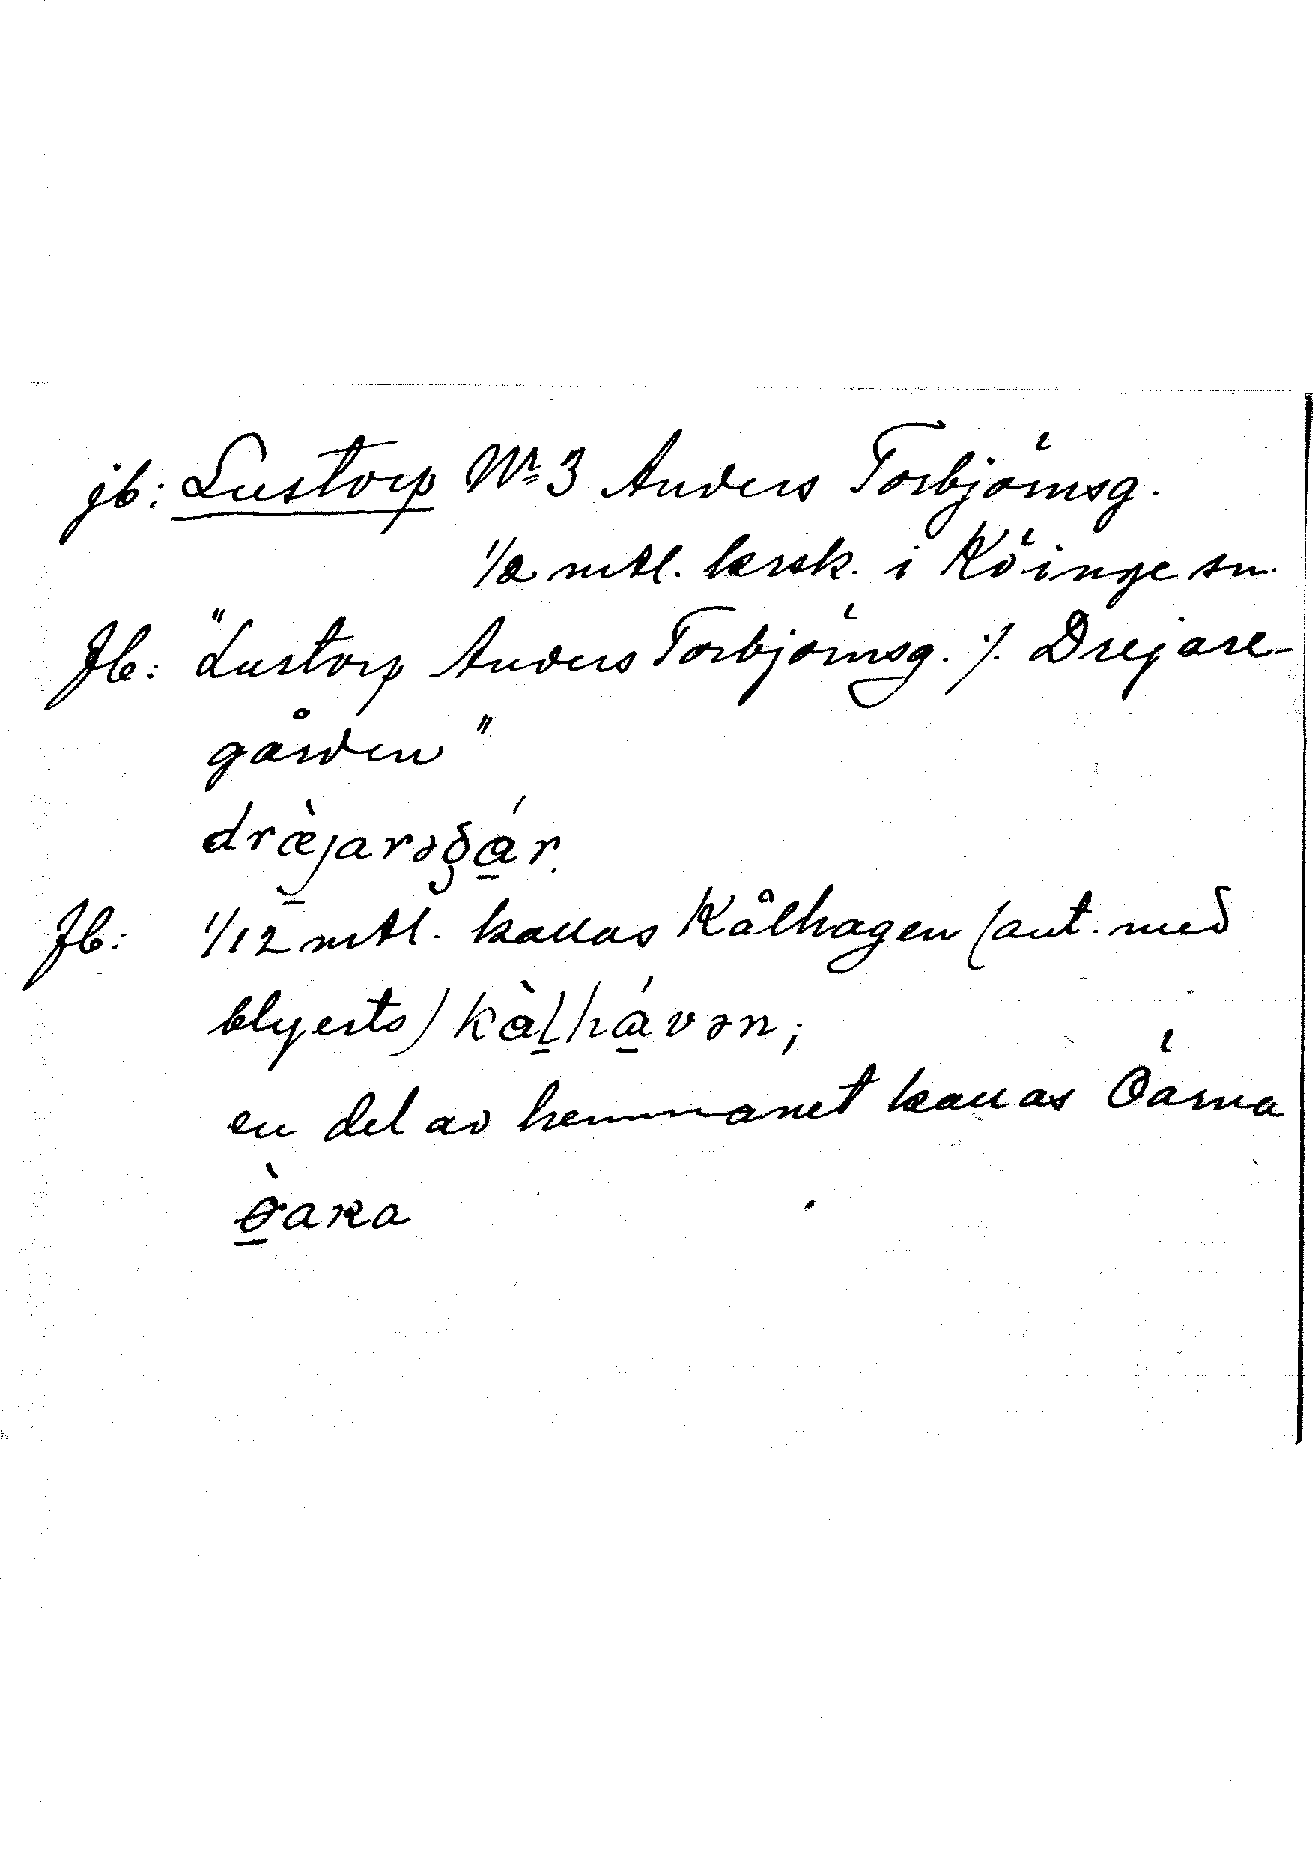 jb: Lustorp No 3 Anders Torbjörnsg.
1/2 mtl. krsk. i Köinge sn.
Jb: "Lustorp Anders Torbjörnsg. ./. Drejare-
gården"
dræ̀jarəgár.
Jb: 1/12 mtl. kallas Kålhagen (ant. med
blyerts) kàlhávən;
en del av hemmanet kallas Öarna
ø̀aʀa